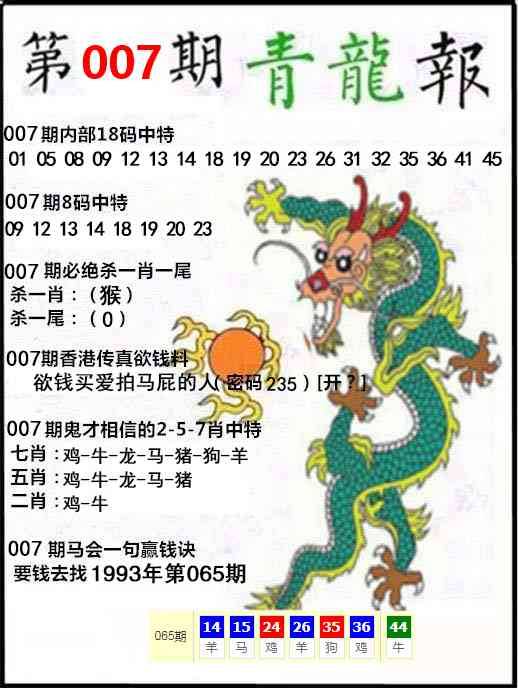 第007期青龍報
007期内部18码中特
01 05 08 09 12 13 14 18 19 20 23 26 31 32 35 36 41 45
007期8码中特
09 12 13 14 18 19 20 23
007期必绝杀一肖一尾
杀一肖：（猴）
杀一尾：（0）
007期香港传真欲钱料
欲钱买爱拍马屁的人(密码235)[开？]
007期鬼才相信的2-5-7肖中特
七肖：鸡-牛-龙-马-猪-狗-羊
五肖：鸡-牛-龙-马-猪
二肖：鸡-牛
007期马会一句赢钱诀
要钱去找1993年第065期
065期 14 15 24 26 35 36 44
羊 马 鸡 羊 狗 鸡 牛